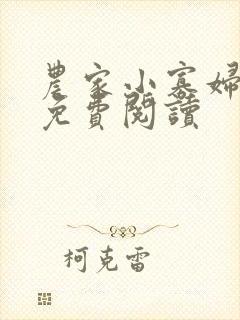 農家小寡婦
免費閱讀
柯克雷